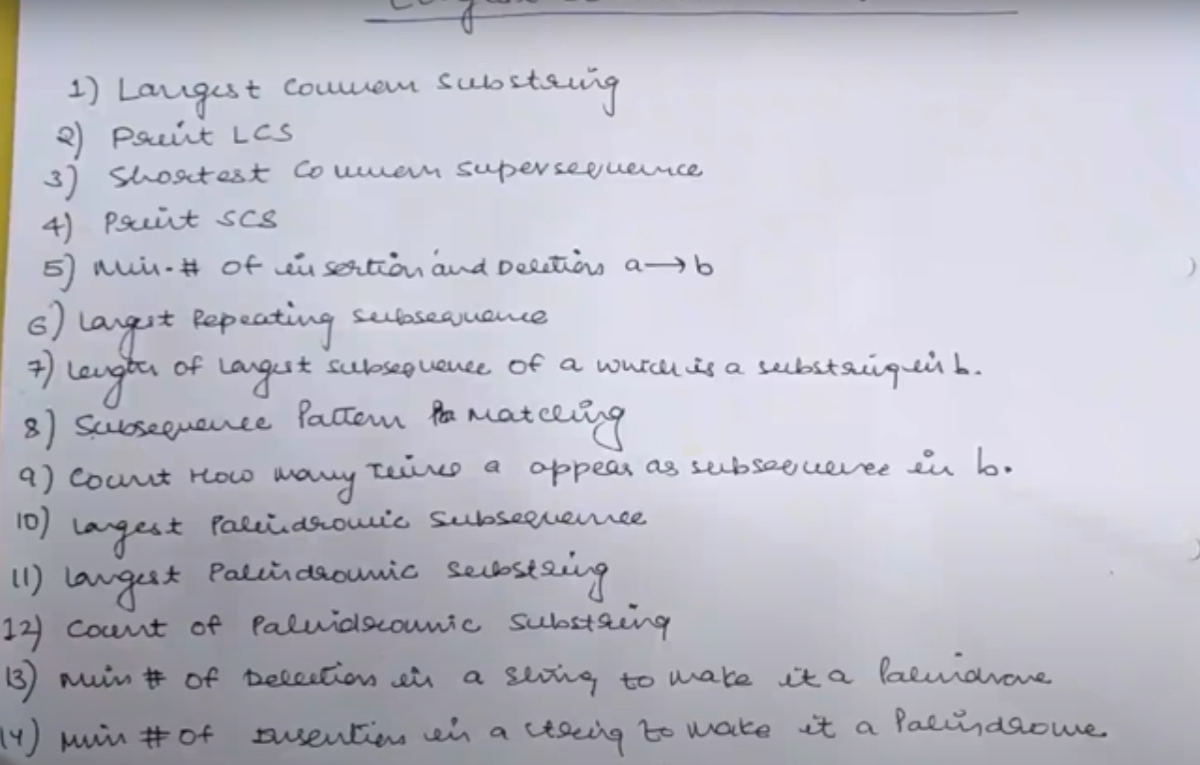 1) Largest Common Substring
2) Print LCS
3) Shortest Common supersequence
4) Print SCS
5) Min. # of insertion and Deletion a→b
6) Largest Repeating subsequence
7) Length of largest subsequence of a which is a substring in b.
8) Subsequence Pattern Matching
9) Count How many times a appear as subsequence in b.
10) Largest Palindromic Subsequence
11) Largest Palindromic Substring
12) Count of Palindromic Substring
13) Min # of Deletion in a string to make it a Palindrome
14) Min # of Insertion in a string to make it a Palindrome.